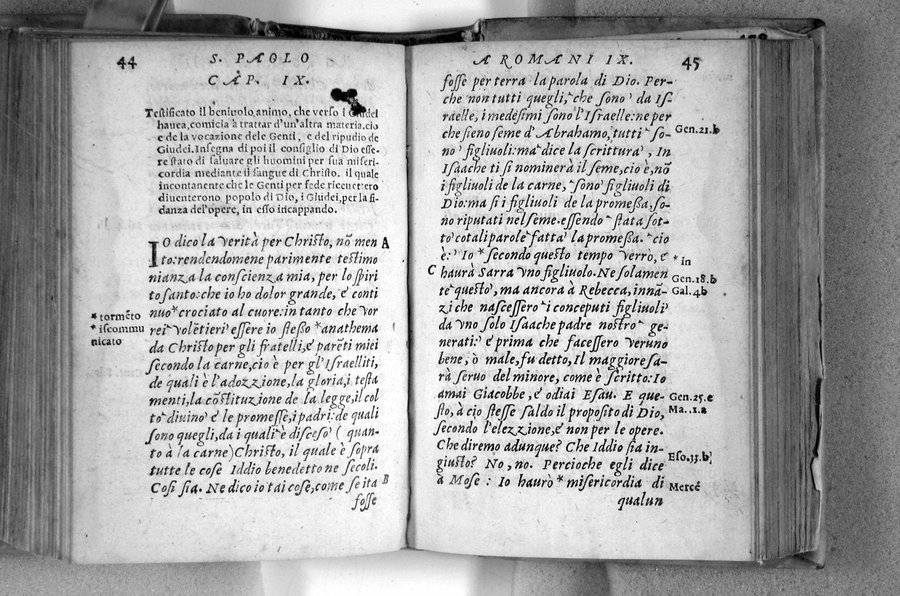 44
S. PAOLO
CAP. IX.
Testificato il beniuolo animo, che verso i Giudei
hauea, comicia à trattar d'un'altra materia, cio
è de la vocazione dele Genti, e del ripudio de
Giudei. Insegna di poi il consiglio di Dio esse-
re stato di saluare gli huomini per sua miseri-
cordia mediante il sangue di Christo. il quale
incontanente che le Genti per fede riceuettero
diuenterono popolo di Dio, i Giudei, per la fi-
danza del'opere, in esso incappando.
IO dico la verità per Christo, nō men A
to: rendendomene parimente testimo
nianza la conscienza mia, per lo spiri
to santo: che io ho dolor grande, e conti
nuo * crociato al cuore: in tanto che vor
rei volētieri essere io stesso * anathema
da Christo per gli fratelli, e parēti miei
secondo la carne, cio è per gl'Israelliti,
de quali è l'adozzione, la gloria, i testa
menti, la cōstituzione de la legge, il col
to diuino e le promesse, i padri: de quali
sono quegli, da i quali è disceso (quan-
to à la carne) Christo, il quale è sopra
tutte le cose Iddio benedetto ne secoli.
Cosi sia. Ne dico io tai cose, come se ita B
fosse
* tormēto
* iscommu
nicato
A ROMANI IX. 45
fosse per terra la parola di Dio. Per-
che non tutti quegli, che sono da Is-
raelle, i medesimi sono l'Israelle: ne per
che sieno seme d'Abrahamo, tutti so-
no figliuoli: ma dice la scrittura, In
Isaache ti si nominerà il seme, cio è, nō
i figliuoli de la carne, sono figliuoli di
Dio: ma si i figliuoli de la promessa, so-
no riputati nel seme. essendo stata sot-
to cotali parole fatta la promessa. cio
è: Io * secondo questo tempo verro, e
C haurà Sarra vno figliuolo. Ne solamen
te questo, ma ancora à Rebecca, innā-
zi che nascessero i conceputi figliuoli
da vno solo Isaache padre nostro ge-
nerati: e prima che facessero veruno
bene, ò male, fu detto, Il maggiore sa-
rà seruo del minore, come è scritto: Io
amai Giacobbe, e odiai Esau. E que-
sto, à cio stesse saldo il proposito di Dio,
secondo l'elezzione, e non per le opere.
Che diremo adunque? Che Iddio sia in-
giusto? No, no. Percioche egli dice
à Mose: Io haurò * misericordia di
qualun
Gen.21.b
* in
Gen.18.b
Gal.4b
Gen.25.e
Ma.1.a
Eso.33.b
Mercé